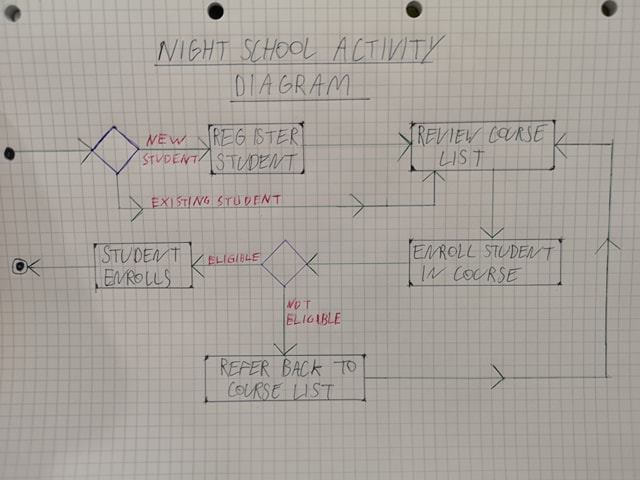 NIGHT SCHOOL ACTIVITY
DIAGRAM
NEW
STUDENT
REGISTER
STUDENT
REVIEW COURSE
LIST
EXISTING STUDENT
STUDENT
ENROLLS
ELIGIBLE
ENROLL STUDENT
IN COURSE
NOT
ELIGIBLE
REFER BACK TO
COURSE LIST